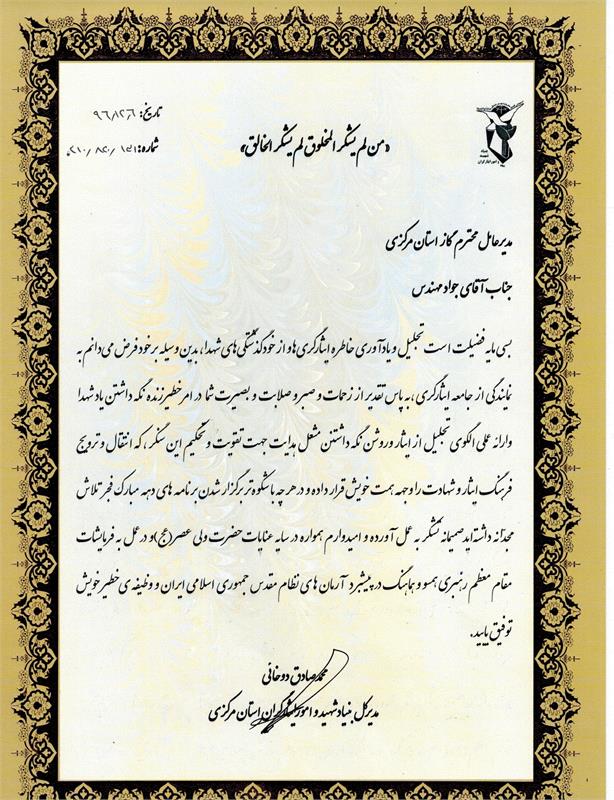 تاریخ: ۹۶/۱۲/۶
«من لم یشکر المخلوق لم یشکر الخالق»
مدیرعامل محترم گاز استان مرکزی
جناب آقای جواد مهندس
بسی مایه فضیلت است تجلیل و یادآوری خاطره ایثارگری ها و از خودگذشتگی های شهدا، بدین وسیله بر خود فرض می دانم به
نمایندگی از جامعه ایثارگری، به پاس تقدیر از زحمات و صبر و صلابت و بصیرت شما در امر خطیر زنده نگه داشتن یاد شهدا
وارائه عملی الگوی تجلیل از ایثار وروشن نگه داشتن مشعل هدایت جهت تقویت و تحکیم این سنگر، که انتقال و ترویج
فرهنگ ایثار و شهادت را وجهه همت خویش قرار داده و در هر چه باشکوه تر برگزار شدن برنامه های دهه مبارک فجر تلاش
مجدانه داشته اید صمیمانه تشکر به عمل آورده و امیدوارم همواره در سایه عنایات حضرت ولی عصر(عج) و در عمل به فرمایشات
مقام معظم رهبری همسو و هماهنگ در پیشبرد آرمان های نظام مقدس جمهوری اسلامی ایران و وظیفه ی خطیر خویش
توفیق یابید.
محمد صادق دوخانی
مدیرکل بنیاد شهید و امور ایثارگران استان مرکزی